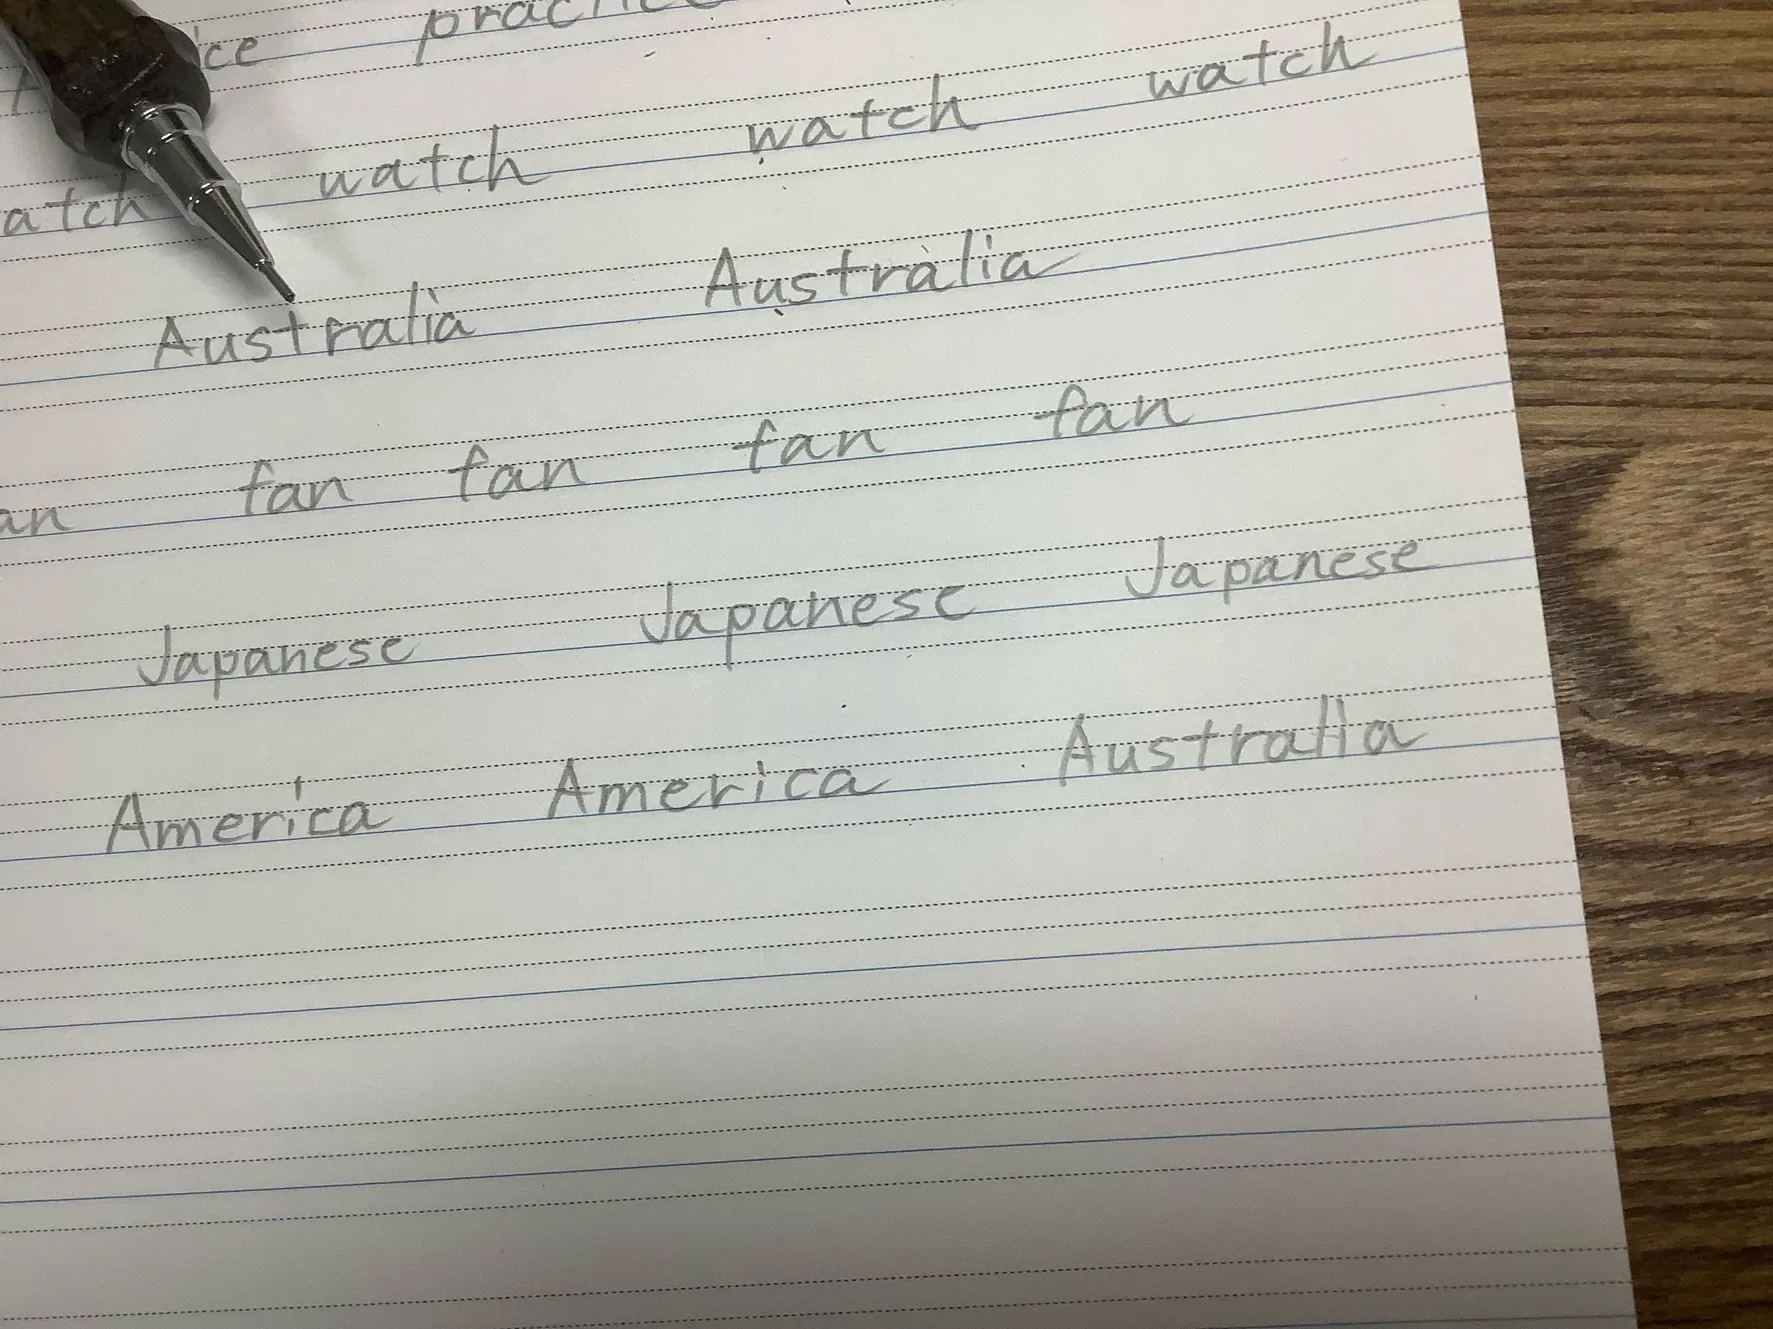 practice
watch watch watch
Australia Australia
fan fan fan fan
Japanese Japanese Japanese
America America Australia